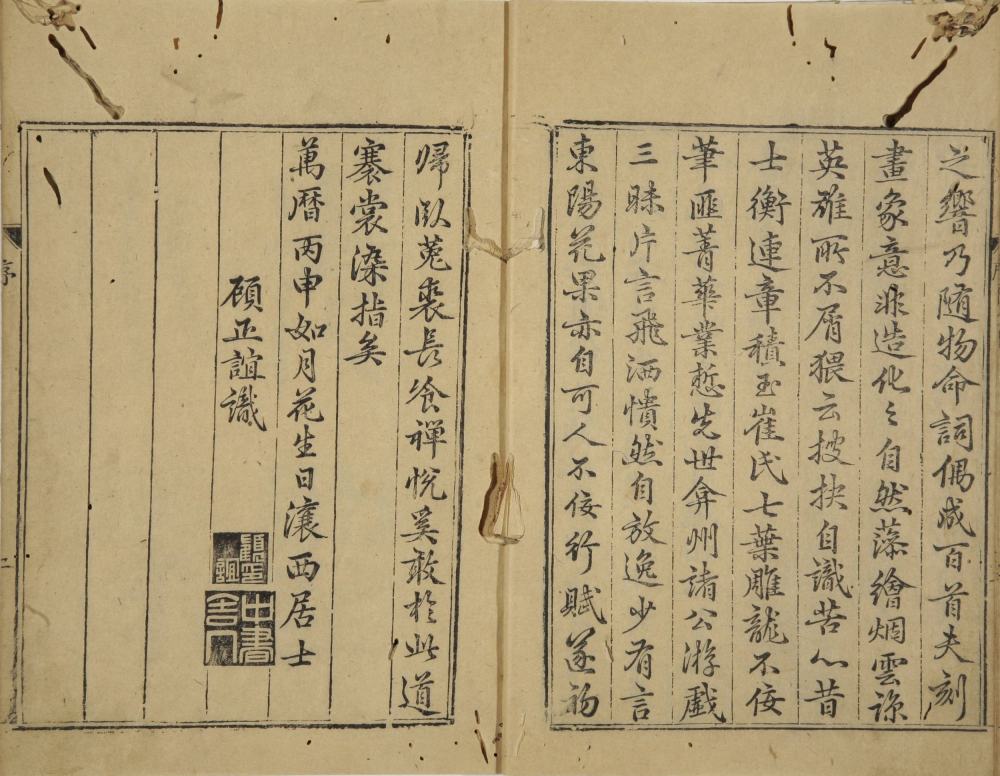 之響乃随物命詞偶成百首夫刻
畫象意非造化之自然藻繪烟雲諒
英雄所不屑猥云披抉自識苦心昔
士衡連章積玉崔氏七葉雕龍不佞
筆匪菁華業慙先世弇州諸公游戲
三昧片言飛洒憒然自放逸少有言
東陽花果亦自可人不佞行賦遂初
歸臥菟裘長飡禪悅奚敢於此道
褰裳染指矣
萬曆丙申如月花生日瀼西居士
頋正誼識
顧正誼
中書舍人
序
二